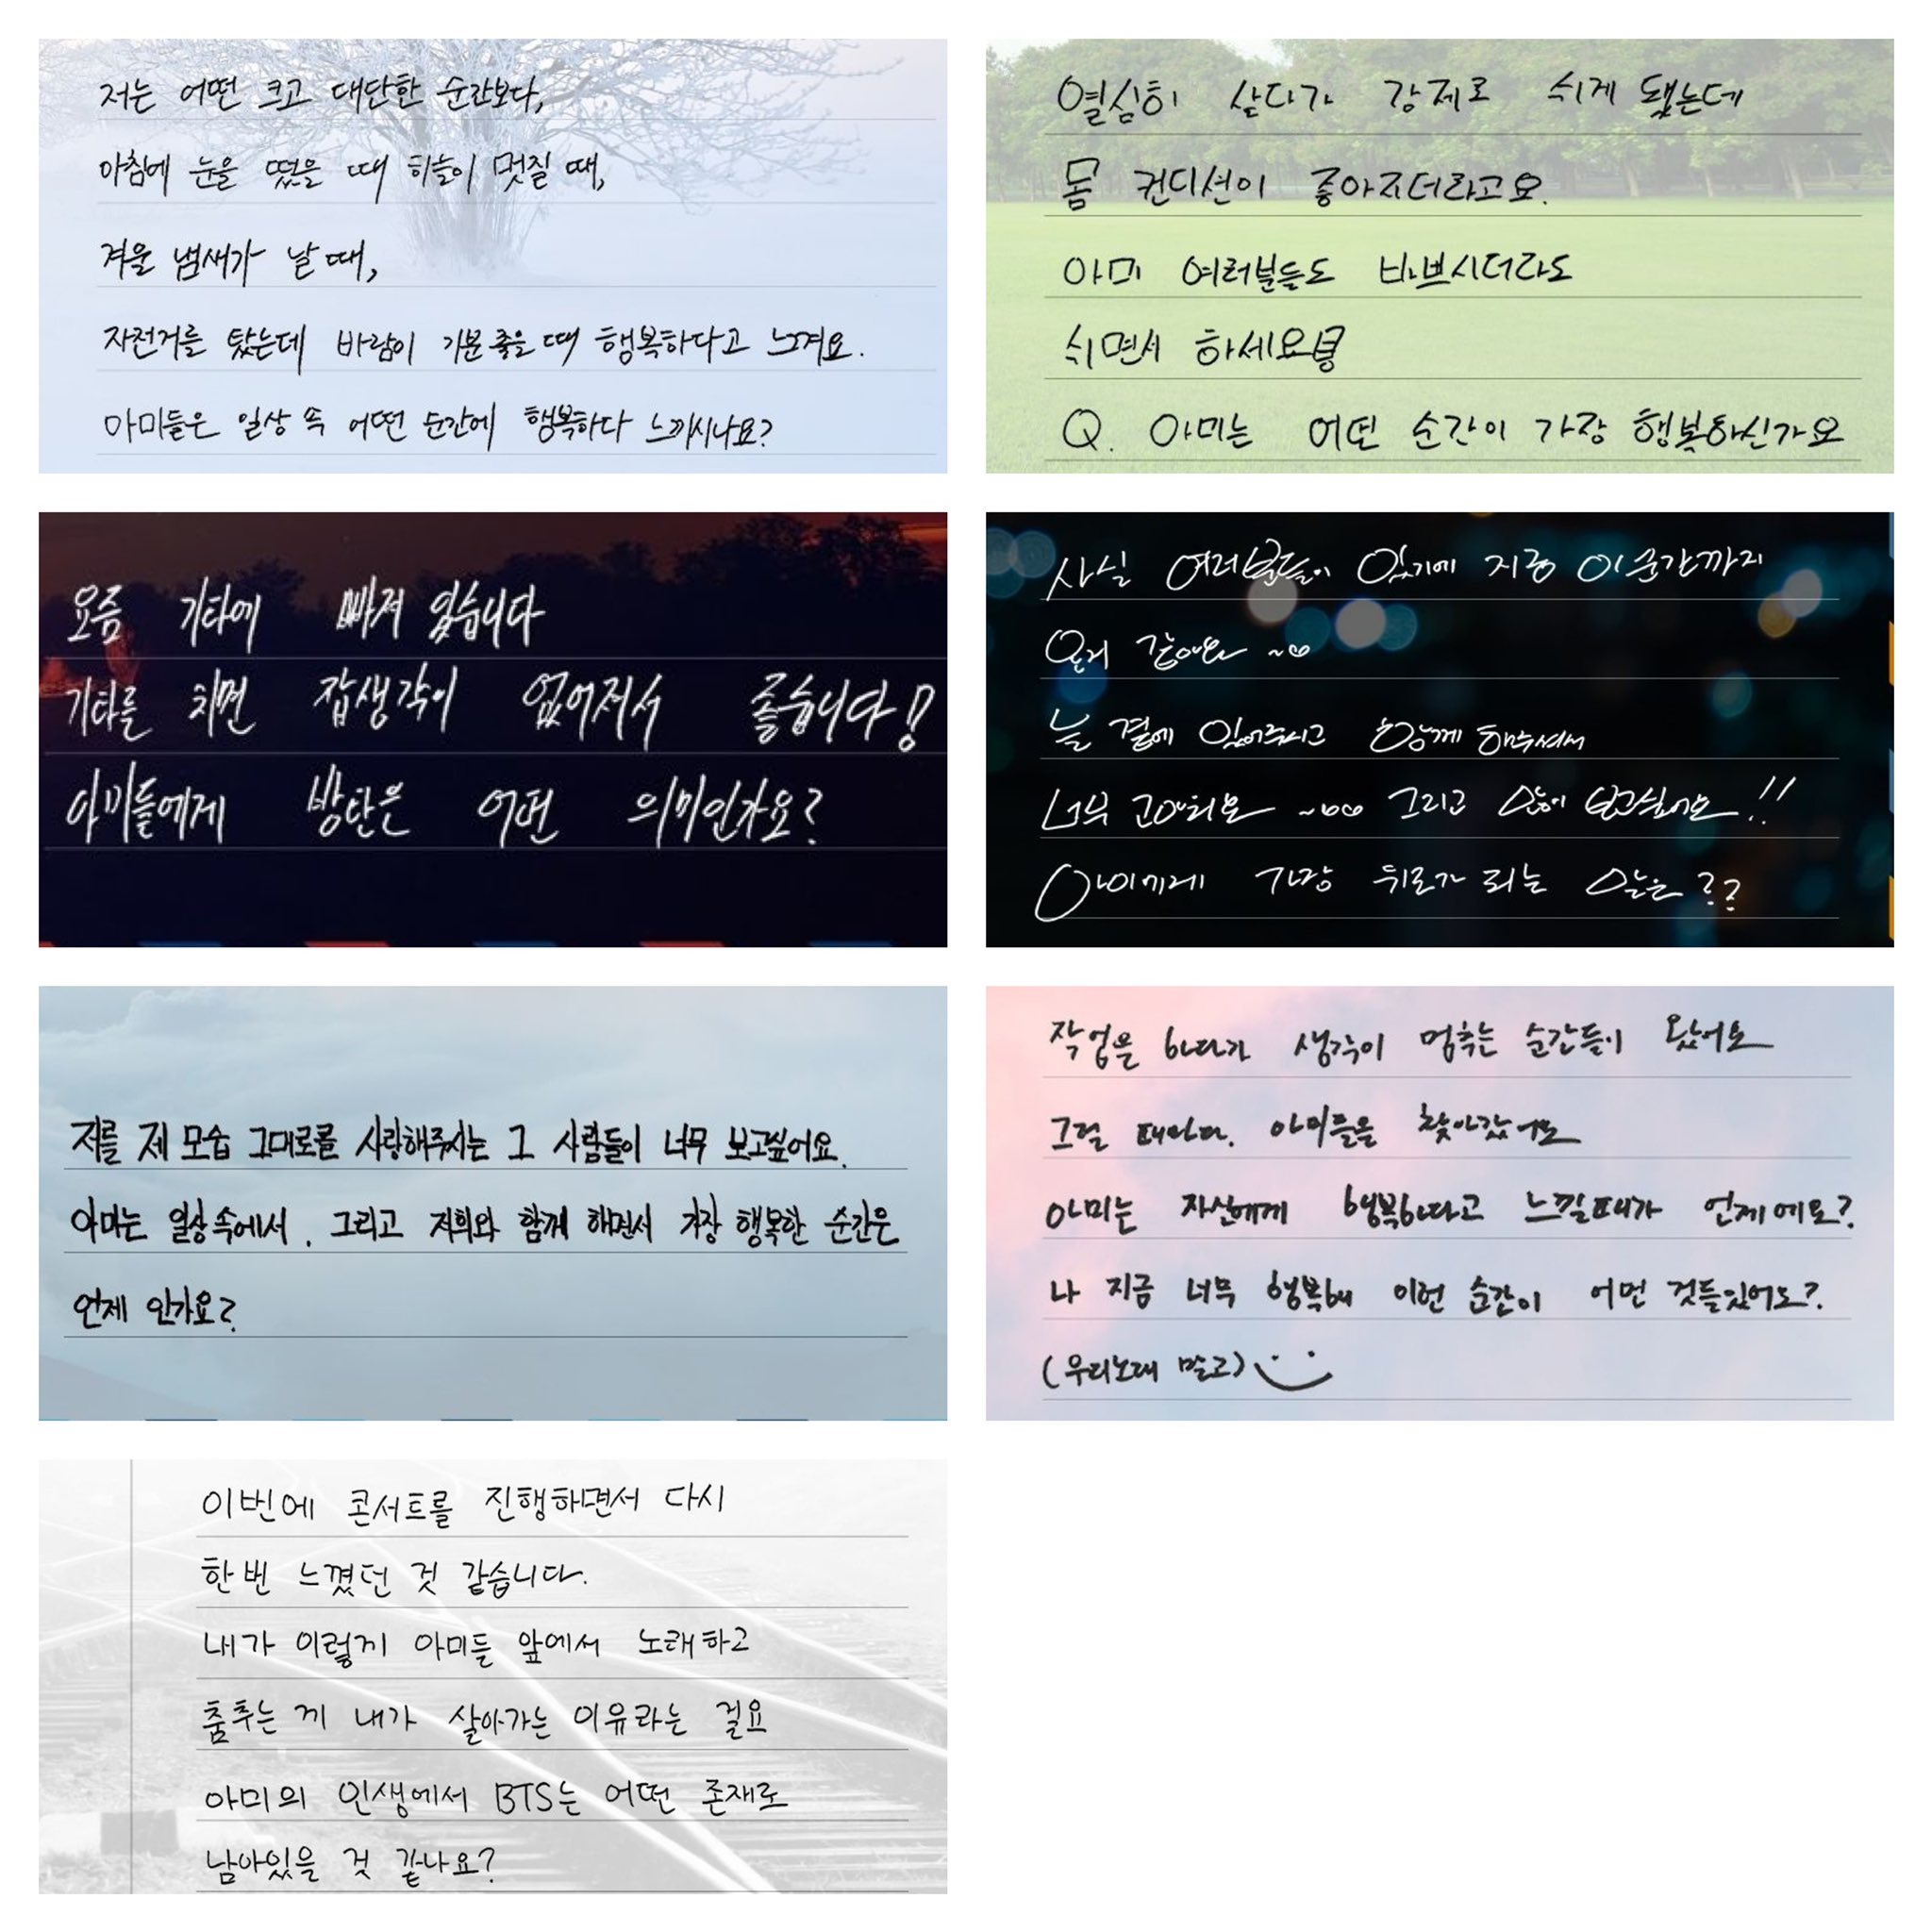 저는 어떤 크고 대단한 순간보다,
아침에 눈을 떴을 때 하늘이 멋질 때,
겨울 냄새가 날 때,
자전거를 탔는데 바람이 기분 좋을 때 행복하다고 느껴요.
아미들은 일상 속 어떤 순간에 행복하다 느끼시나요?
열심히 살다가 강제로 쉬게 됐는데
몸 컨디션이 좋아지더라고요.
아미 여러분들도 바쁘시더라도
쉬면서 하세요
Q. 아미는 어떤 순간이 가장 행복하신가요
요즘 기타에 빠져 있습니다
기타를 치면 잡생각이 없어져서 좋습니다!
아미들에게 방탄은 어떤 의미인가요?
사실 여러분들이 있기에 지금 이 순간까지
온거 같아요~
늘 곁에 있어주시고 함께 해주셔서
너무 고마워요~ 그리고 많이 보고싶어요!!
아미에게 가장 위로가 되는 말은??
저를 제 모습 그대로를 사랑해주시는 그 사람들이 너무 보고싶어요.
아미는 일상속에서, 그리고 저희와 함께 하면서 가장 행복한 순간은
언제 인가요?
작업을 하다가 생각이 멈추는 순간들이 왔어요
그럴 때마다. 아미들을 찾아갔어요
아미는 자신에게 행복하다고 느낄때가 언제에요?
나 지금 너무 행복해 이런 순간이 어떤 것들있어요?
(우리노래 말고)
이번에 콘서트를 진행하면서 다시
한번 느꼈던 것 같습니다.
내가 이렇게 아미들 앞에서 노래하고
춤추는 게 내가 살아가는 이유라는 걸요
아미의 인생에서 BTS는 어떤 존재로
남아있을 것 같나요?